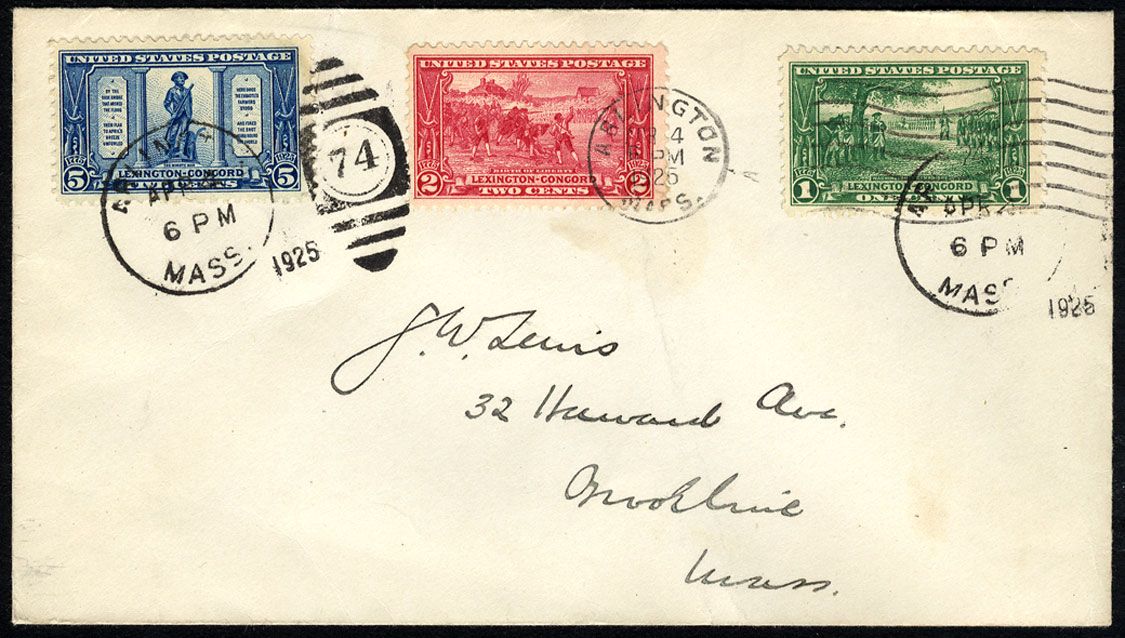 UNITED STATES POSTAGE
BY THE RUDE BRIDGE THAT ARCHED THE FLOOD
THEIR FLAG TO APRIL'S BREEZE UNFURLED
HERE ONCE THE EMBATTLED FARMERS STOOD
AND FIRED THE SHOT HEARD ROUND THE WORLD
1775 1925
LEXINGTON-CONCORD
5 5
MASS.
6 PM
1925
74
UNITED STATES POSTAGE
1775 1925
BIRTH OF LIBERTY
LEXINGTON-CONCORD
2 TWO CENTS 2
ABINGTON
4
PM
25
MASS.
UNITED STATES POSTAGE
1775 1925
LEXINGTON-CONCORD
1 1
APR
6 PM
MASS
1925
J. W. Lewis
32 Howard Ave.
Brookline
Mass.